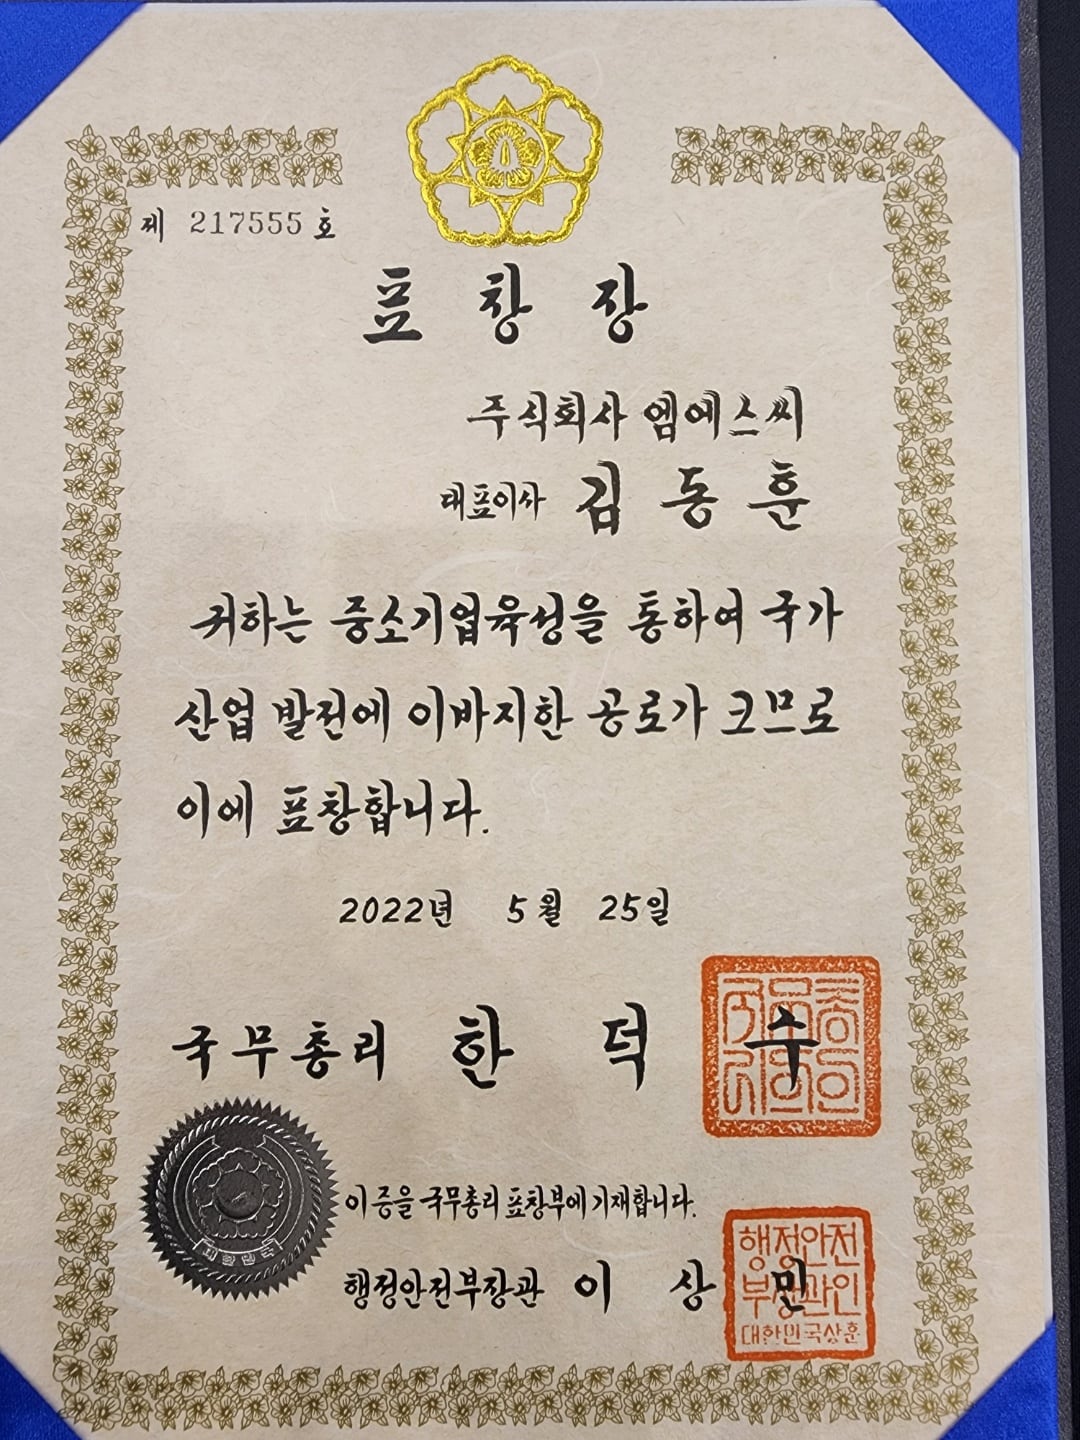 제 217555 호
표 창 장
주식회사 엠에스씨
대표이사 김 동 훈
귀하는 중소기업육성을 통하여 국가
산업 발전에 이바지한 공로가 크므로
이에 표창합니다.
2022년 5월 25일
국무총리 한 덕 수
국무총리의인
이 증을 국무총리 표창부에 기재합니다.
행정안전부장관 이 상 민
행정안전
부장관인
대한민국상훈
대한민국